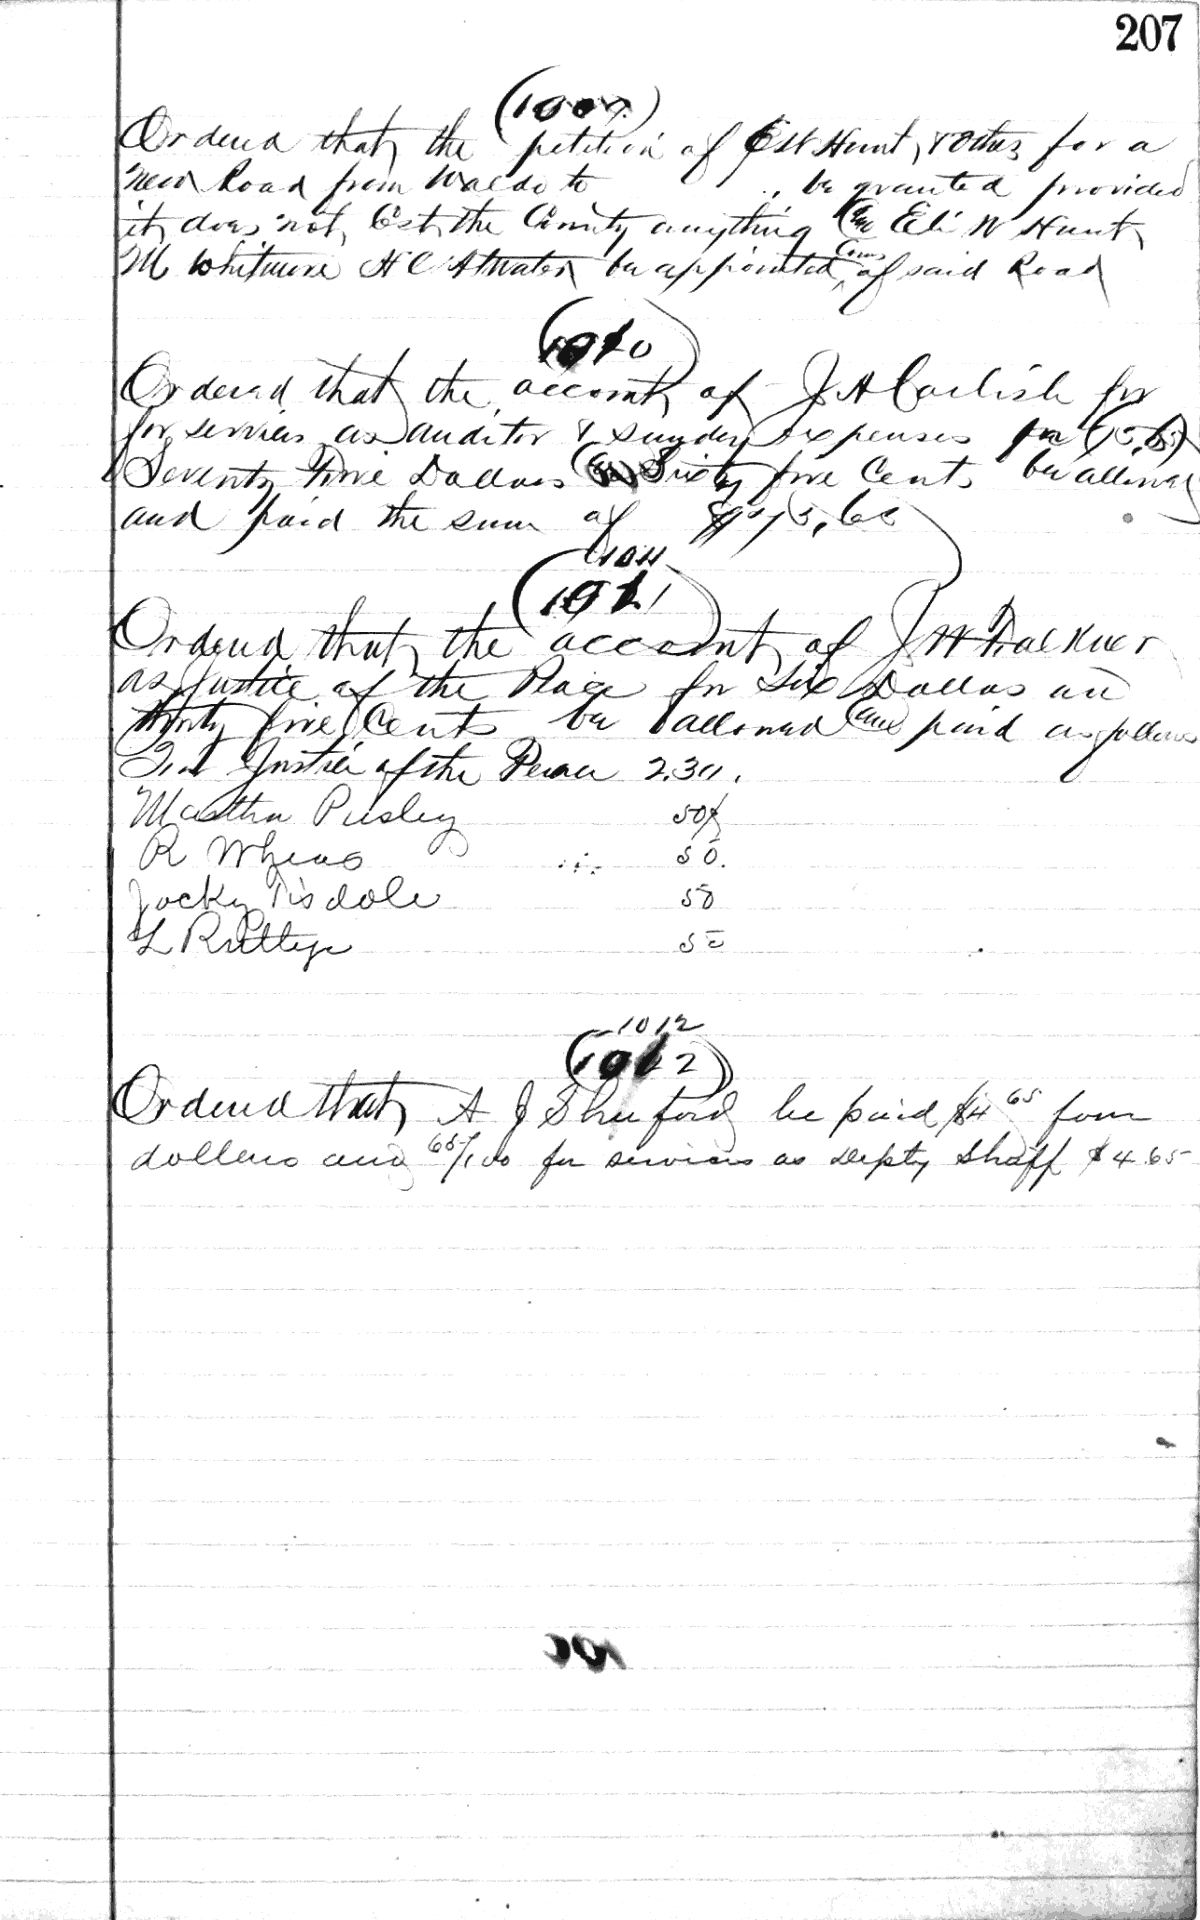 207
(1009)
Ordered that the petition of E W Hunt, & others for a
new Road from Waldo to be granted provided
it does not Cost the County anything and Eli W Hunt,
M Whitmore H C Atwater be appointed Coms of said Road
(1010)
Ordered that the account of J A Carlisle for
for services as auditor & sundry expenses for (75.65)
Seventy Five Dollars and Sixty five Cents be allowed
and paid the sum of $75,65
1011
(1011)
Ordered that the account of J W Faulkner
as Justice of the Peace for Six Dollars and
thirty five Cents be allowed and paid as follows
Justice of the Peace 2.30.
Martha Pusley 50¢
R Wheas 50.
Jocky Tisdale 50
L Ruttye 50
1012
(1012)
Ordered that A J Shuford be paid $4 65 four
dollars and 65/100 for services as Depty Shaff $4.65